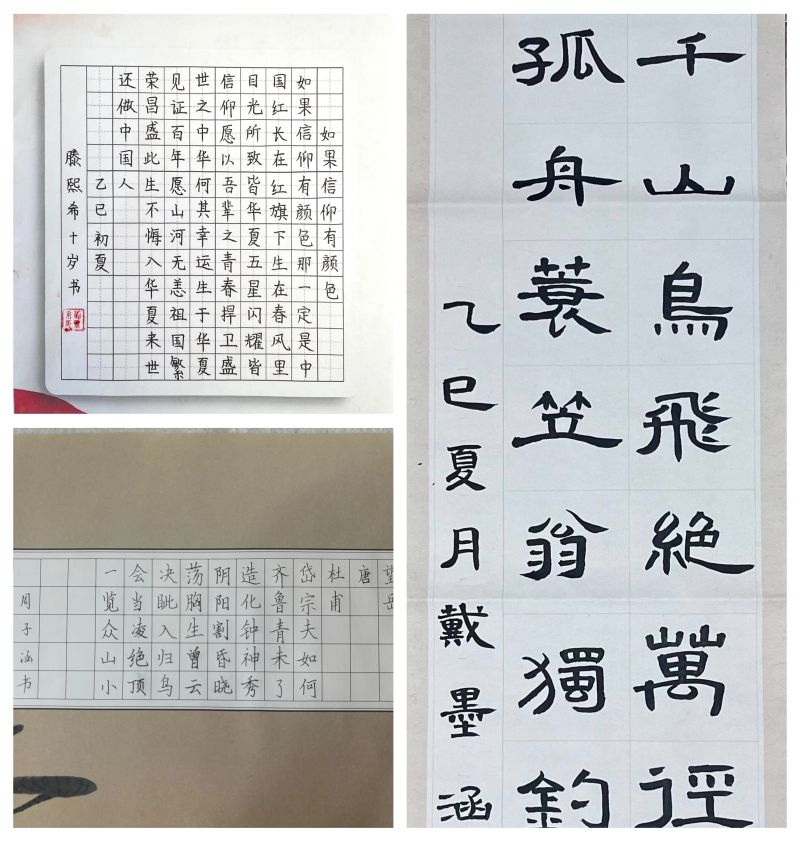 如果信仰有颜色
如果信仰有颜色那一定是中
国红长在红旗下生在春风里
目光所致皆华夏五星闪耀皆
信仰愿以吾辈之青春捍卫盛
世之中华何其幸运生于华夏
见证百年愿山河无恙祖国繁
荣昌盛此生不悔入华夏来世
还做中国人
乙巳初夏
滕熙希十岁书
望岳
唐
杜甫
岱宗夫如何
齐鲁青未了
造化钟神秀
阴阳割昏晓
荡胸生曾云
决眦入归鸟
会当凌绝顶
一览众山小
周子涵书
千山鳥飛絶萬徑
孤舟蓑笠翁獨釣
乙巳夏月戴墨涵